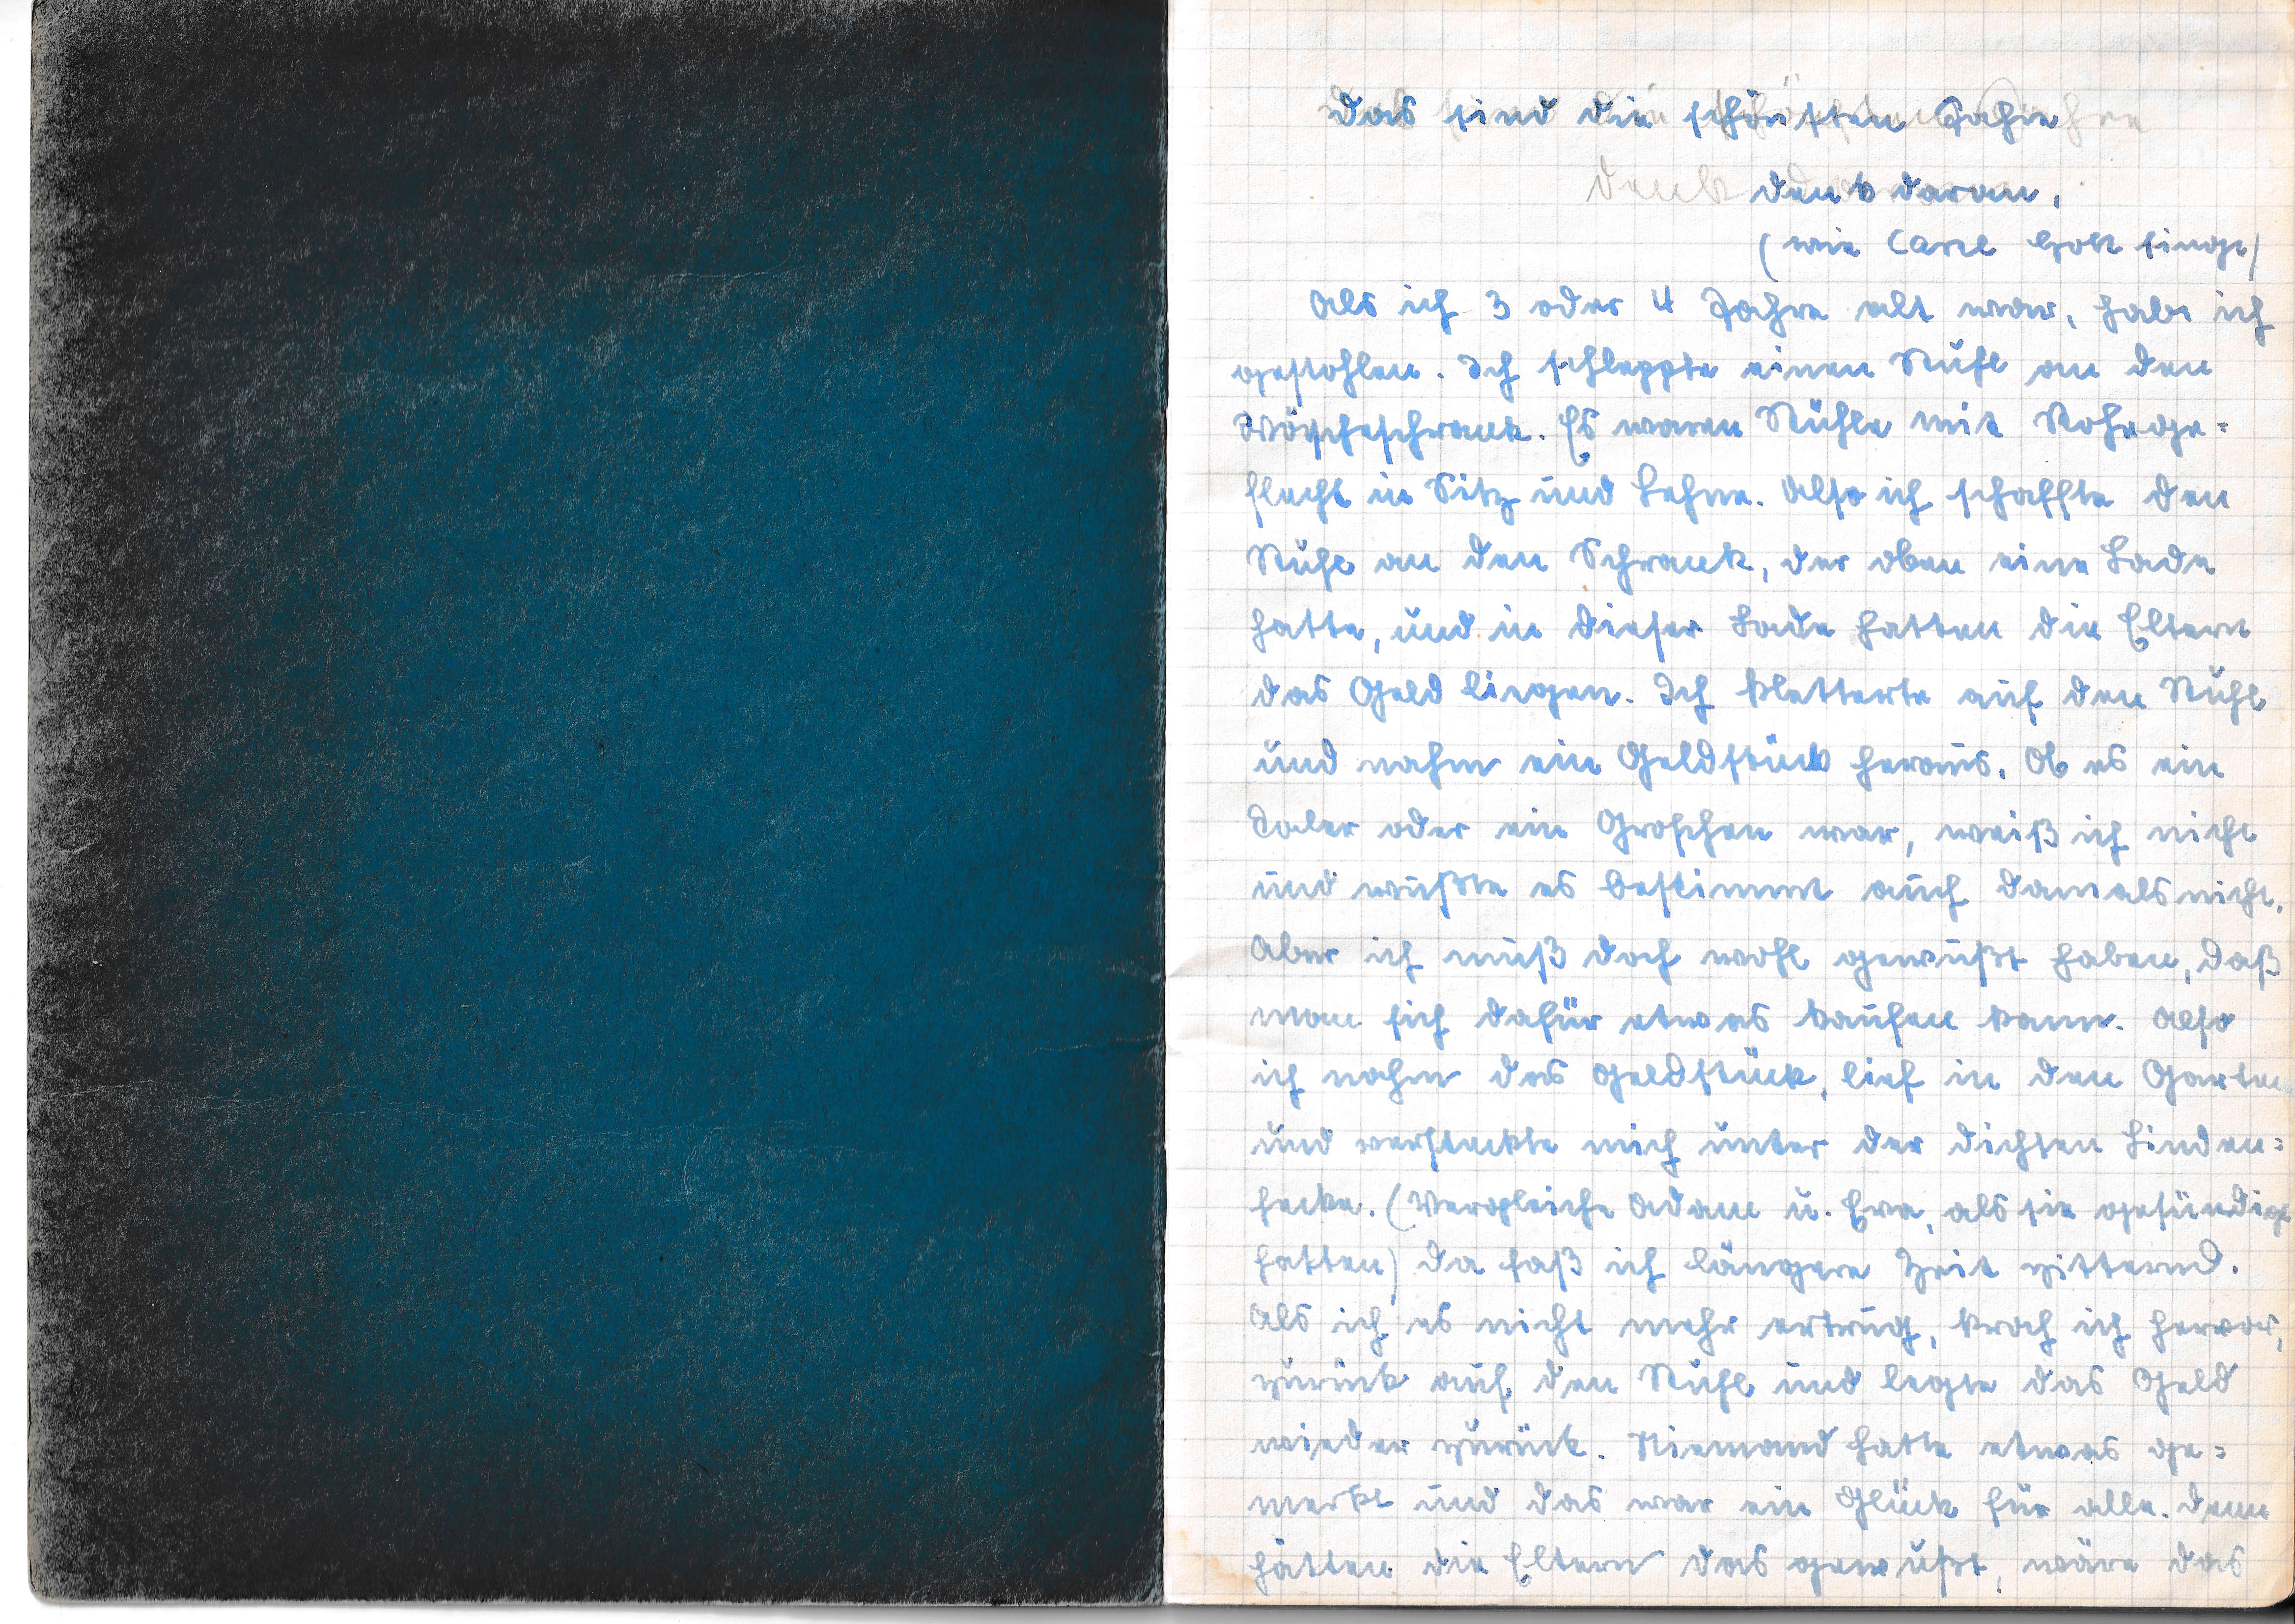 Das sind die schönsten Jahre
denk daran,
(wie Carel Gott singt)
Als ich 3 oder 4 Jahre alt war, habe ich
gestohlen. Ich schleppte einen Stuhl an den
Wäscheschrank. Es waren Stühle mit Rohrge=
flecht in Sitz und Lehne. Also ich schaffte den
Stuhl an den Schrank, der oben eine Lade
hatte, und in dieser Lade hatten die Eltern
das Geld liegen. Ich kletterte auf den Stuhl
und nahm ein Geldstück heraus. Ob es ein
Taler oder ein Groschen war, weiß ich nicht
und wußte es bestimmt auch damals nicht.
Aber ich muß doch wohl gewußt haben, daß
man sich dafür etwas kaufen kann. Also
ich nahm das Geldstück, lief in den Garten
und versteckte mich unter der dichten Linden=
hecke. (Vergleiche Adam u. Eva, als sie gesündigt
hatten) Da saß ich längere Zeit zitternd.
Als ich es nicht mehr ertrug, kroch ich hervor,
zurück auf den Stuhl und legte das Geld
wieder zurück. Niemand hatte etwas ge=
merkt und das war ein Glück für alle. Denn
hätten die Eltern das gewußt, wäre das